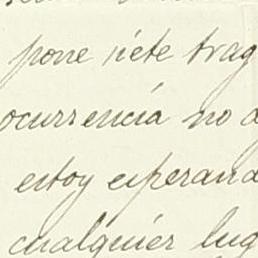 pone siete trag
ocurrencia no d
estoy esperand
cualquier lug